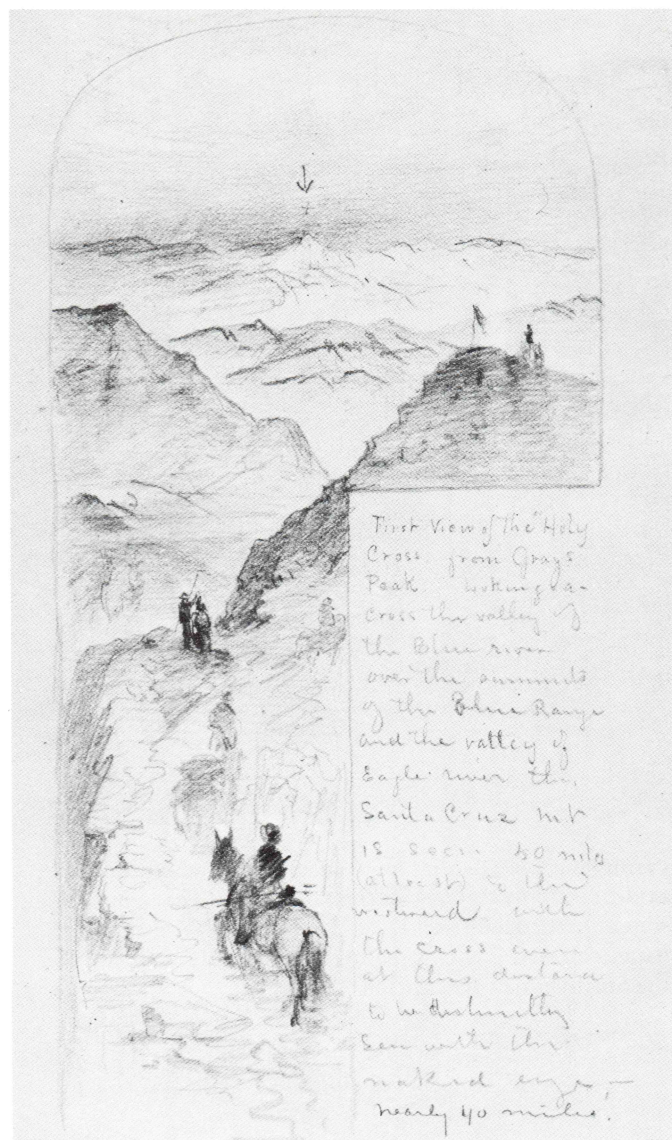 First View of The "Holy
Cross from Grays
Peak looking a-
cross the valley of
the Blue river
over the summits
of the Blue Range
and the valley of
Eagle river the
Santa Cruz mt
is seen 50 miles
(at least) to the
westward with
the cross even
at this distance
to be distinctly
seen with the
naked eye,—
nearly 40 miles.